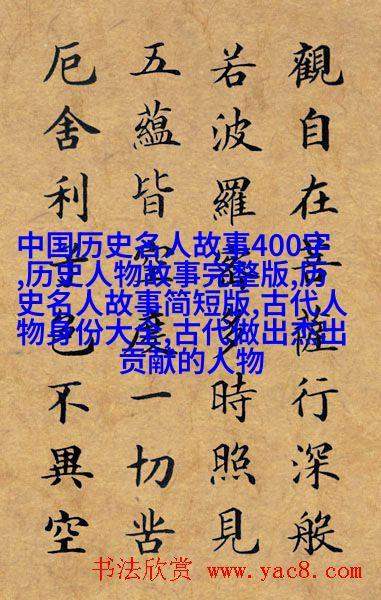 觀自在菩薩行深般
若波羅蜜多時照見
五蘊皆空度一切苦
厄舍利子色不異空
中国历史名人故事400字
,历史人物故事完整版,历
史名人故事简短版,古代人
物身份大全,古代做出杰出
贡献的人物
书法欣赏 www.yac8.com